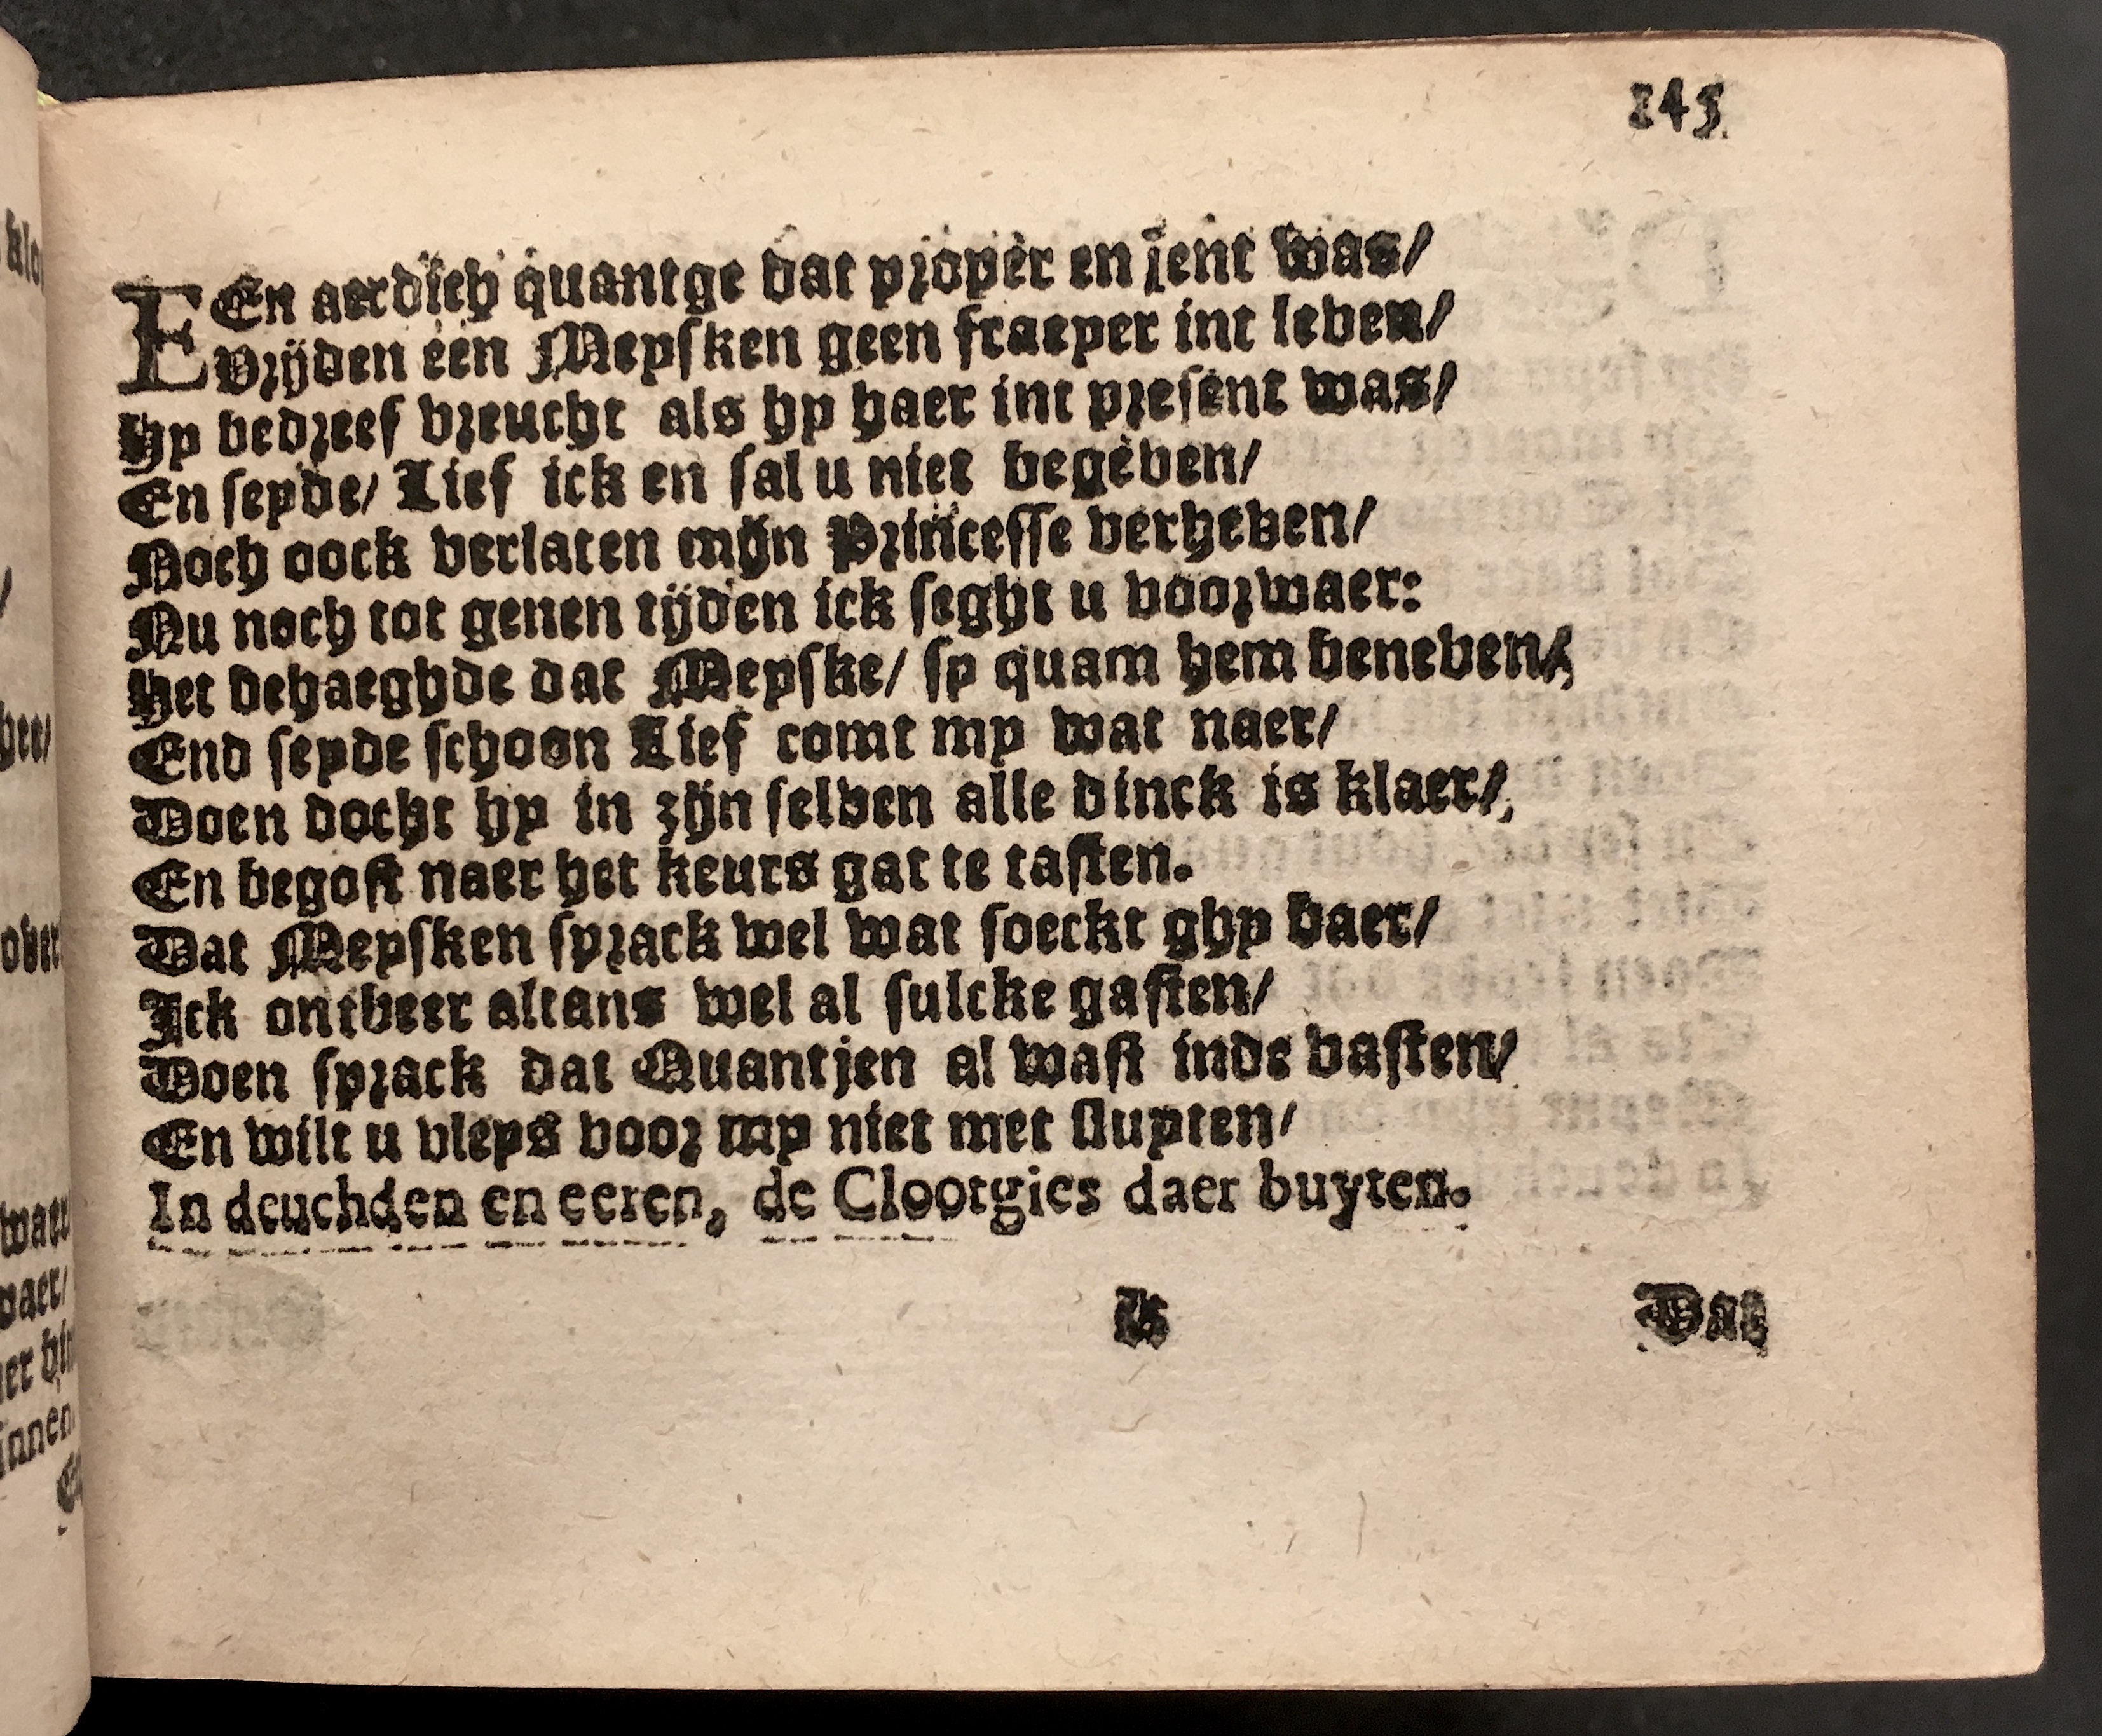 145.
EEn aerdich quantge dat proper en jent was/
Vrijden een Meysken geen fraeyer int leven/
Hy bedreef vreucht als hy haer int present was/
En seyde/ Lief ick en sal u niet begeven/
Noch oock verlaten mijn Princesse verheven/
Nu noch tot genen tijden ick seght u voorwaer:
Het behaeghde dat Meyske/ sy quam hem beneven/
End seyde schoon Lief comt my wat naer/
Doen docht hy in zijn selven alle dinck is klaer/
En begost naer het keurs gat te tasten.
Dat Meysken sprack wel wat soeckt ghy daer/
Ick ontbeer altans wel al sulcke gasten/
Doen sprack dat Quantjen al wast inde vasten/
En wilt u vleys voor my niet met sluyten/
In deuchden en eeren, de Clootgies daer buyten.
Dat